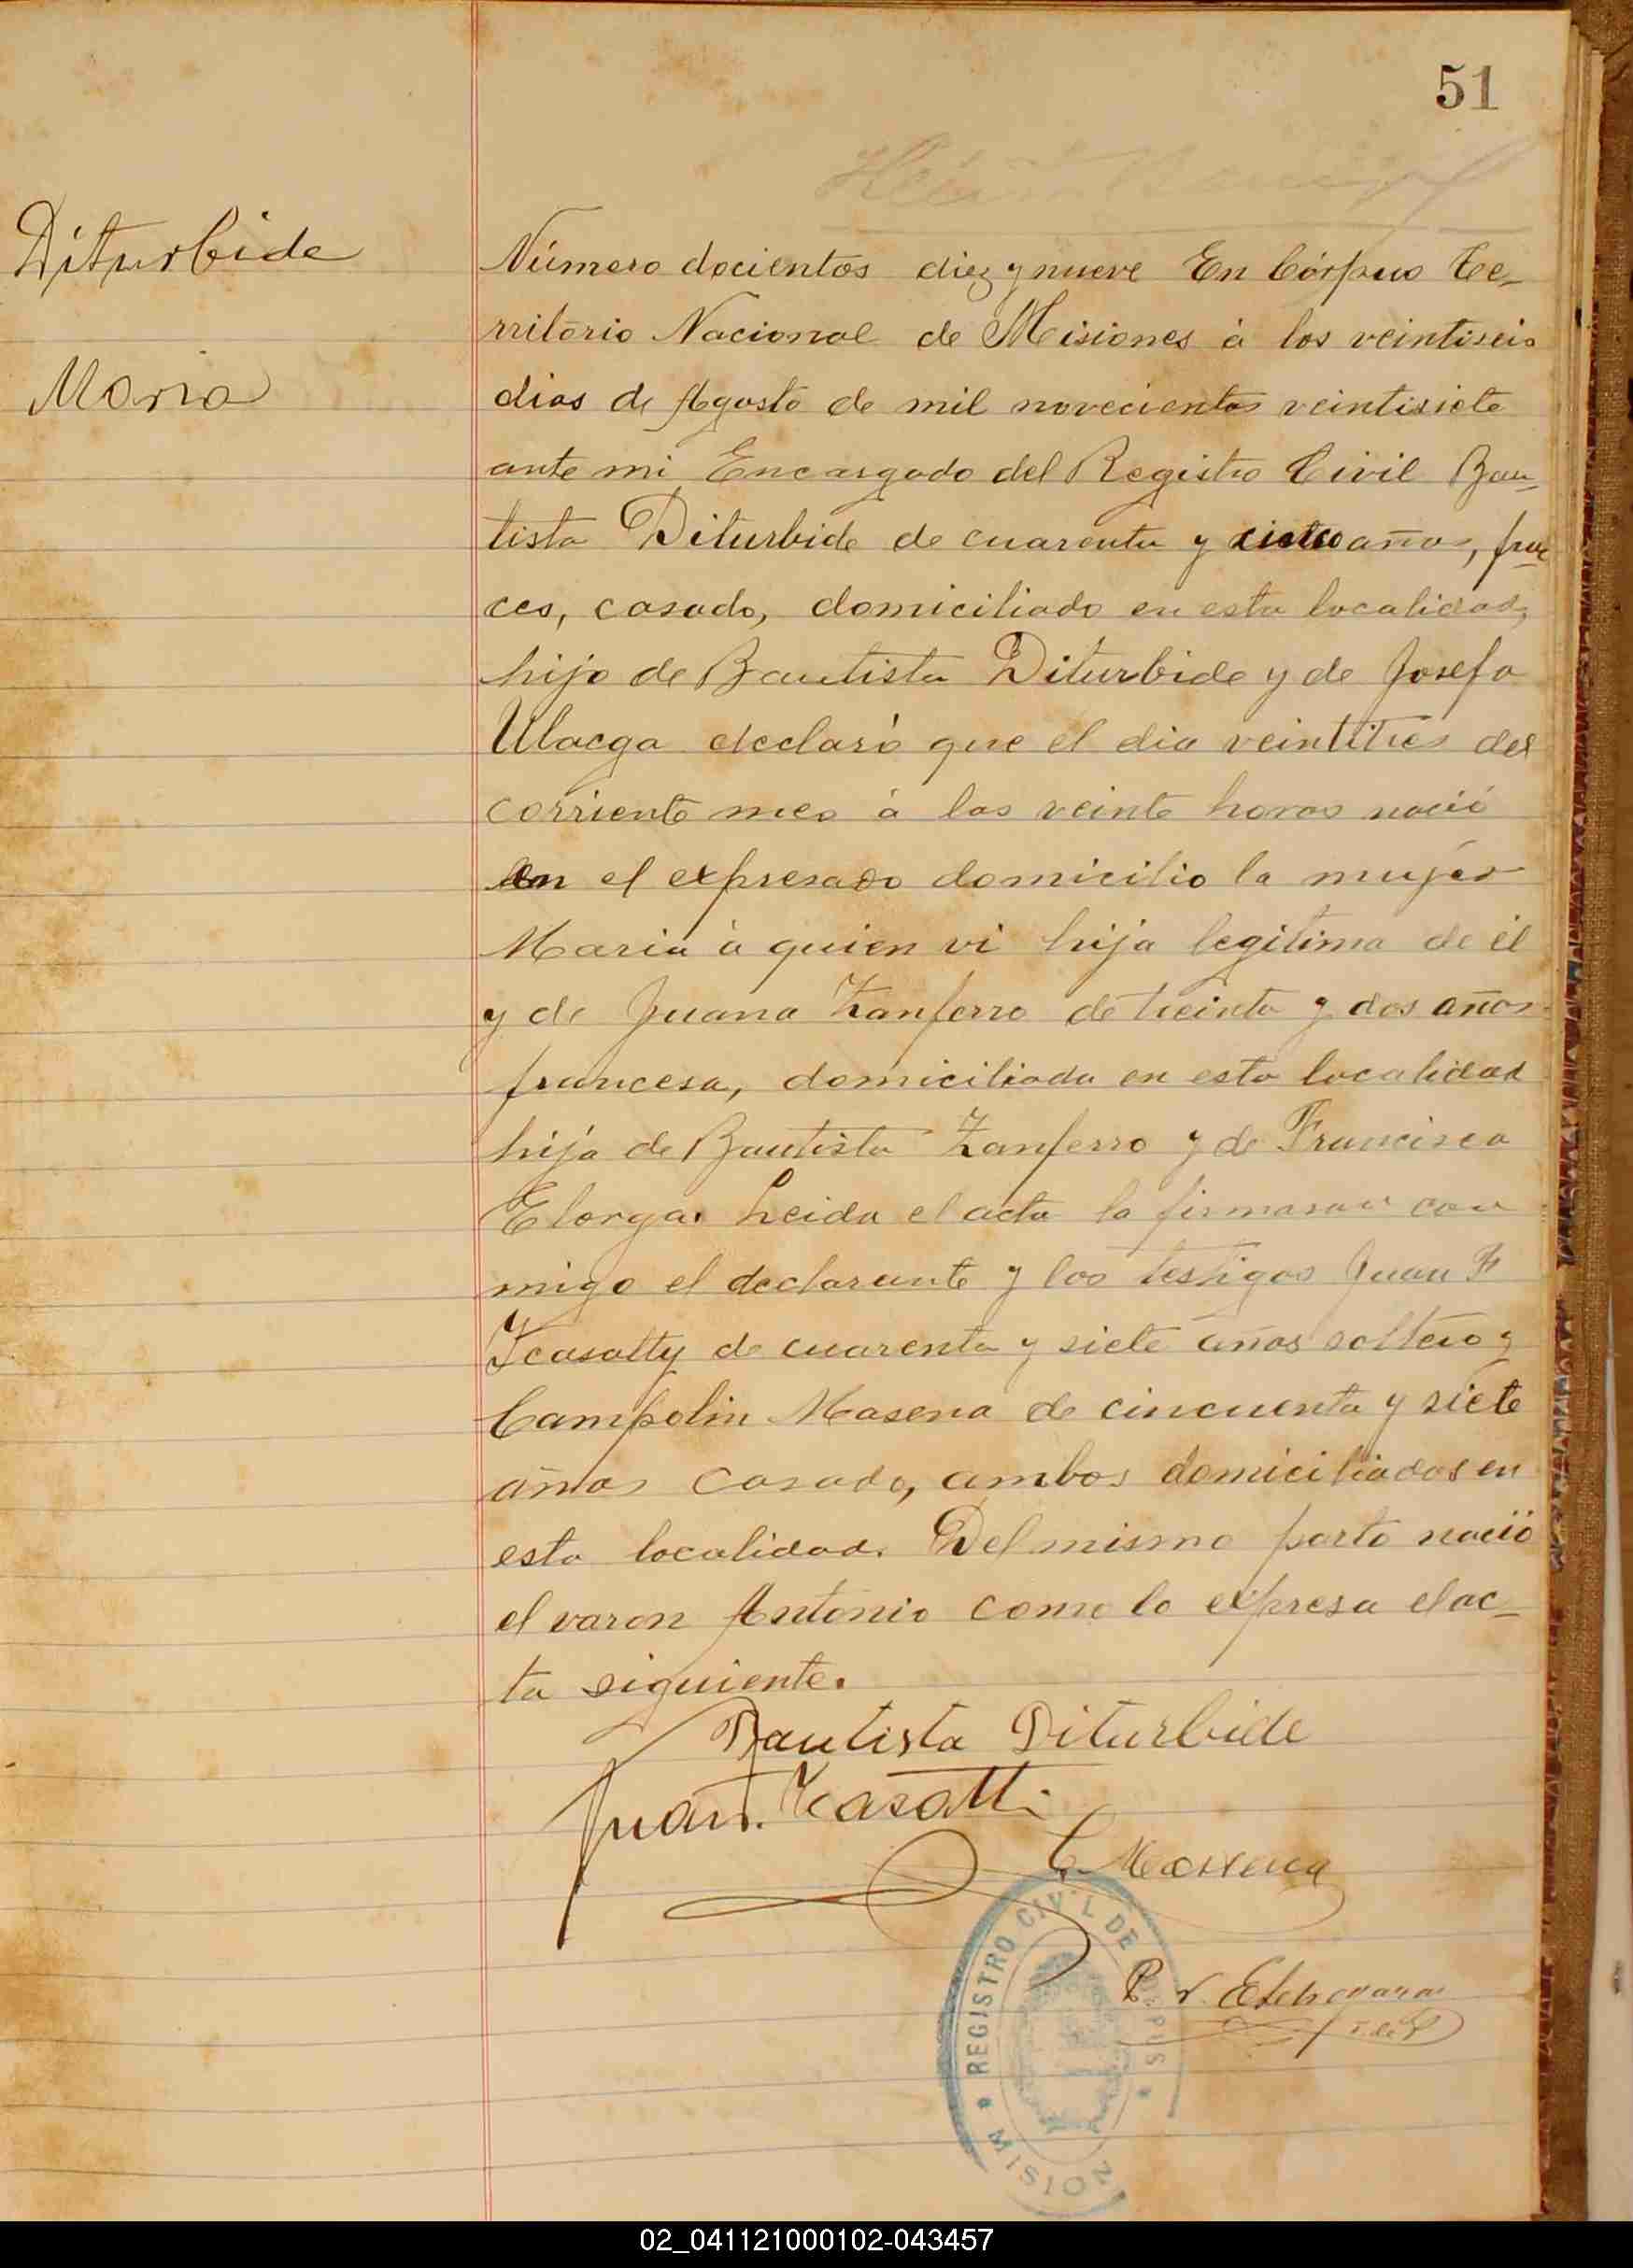 51
Diturbide
Maria
Número docientos diez y nueve En Córpus Te-
rritorio Nacional de Misiones á los veintiseis
dias de Agosto de mil novecientos veintisiete
ante mi Encargado del Registro Civil Bau-
tista Diturbide de cuarenta y años, fran
ces, casado, domiciliado en esta localidad,
hijo de Bautista Diturbide y de Josefa
Ulacga declaró que el dia veintitres del
corriente mes á las veinte horas nació
en el expresado domicilio la mujer
Maria á quien vi hija legitima de él
y de Juana Zanferro de treinta y dos años
francesa, domiciliada en esta localidad
hija de Bautista Zanferro y de Francisca
Elorga. Leida el acta la firmaron con
migo el declarante y los testigos Juan F
Icasatty de cuarenta y siete años soltero y
Campolin Masena de cincuenta y siete
años casado, ambos domiciliados en
esta localidad. Del mismo parto nació
el varon Antonio como lo expresa el ac-
ta siguiente.
Bautista Diturbide
Juan F. Icasatti
C. Massena
P. V. Etchegaray
J. de P
REGISTRO CIVIL DE CORPUS
MISION
02_041121000102-043457